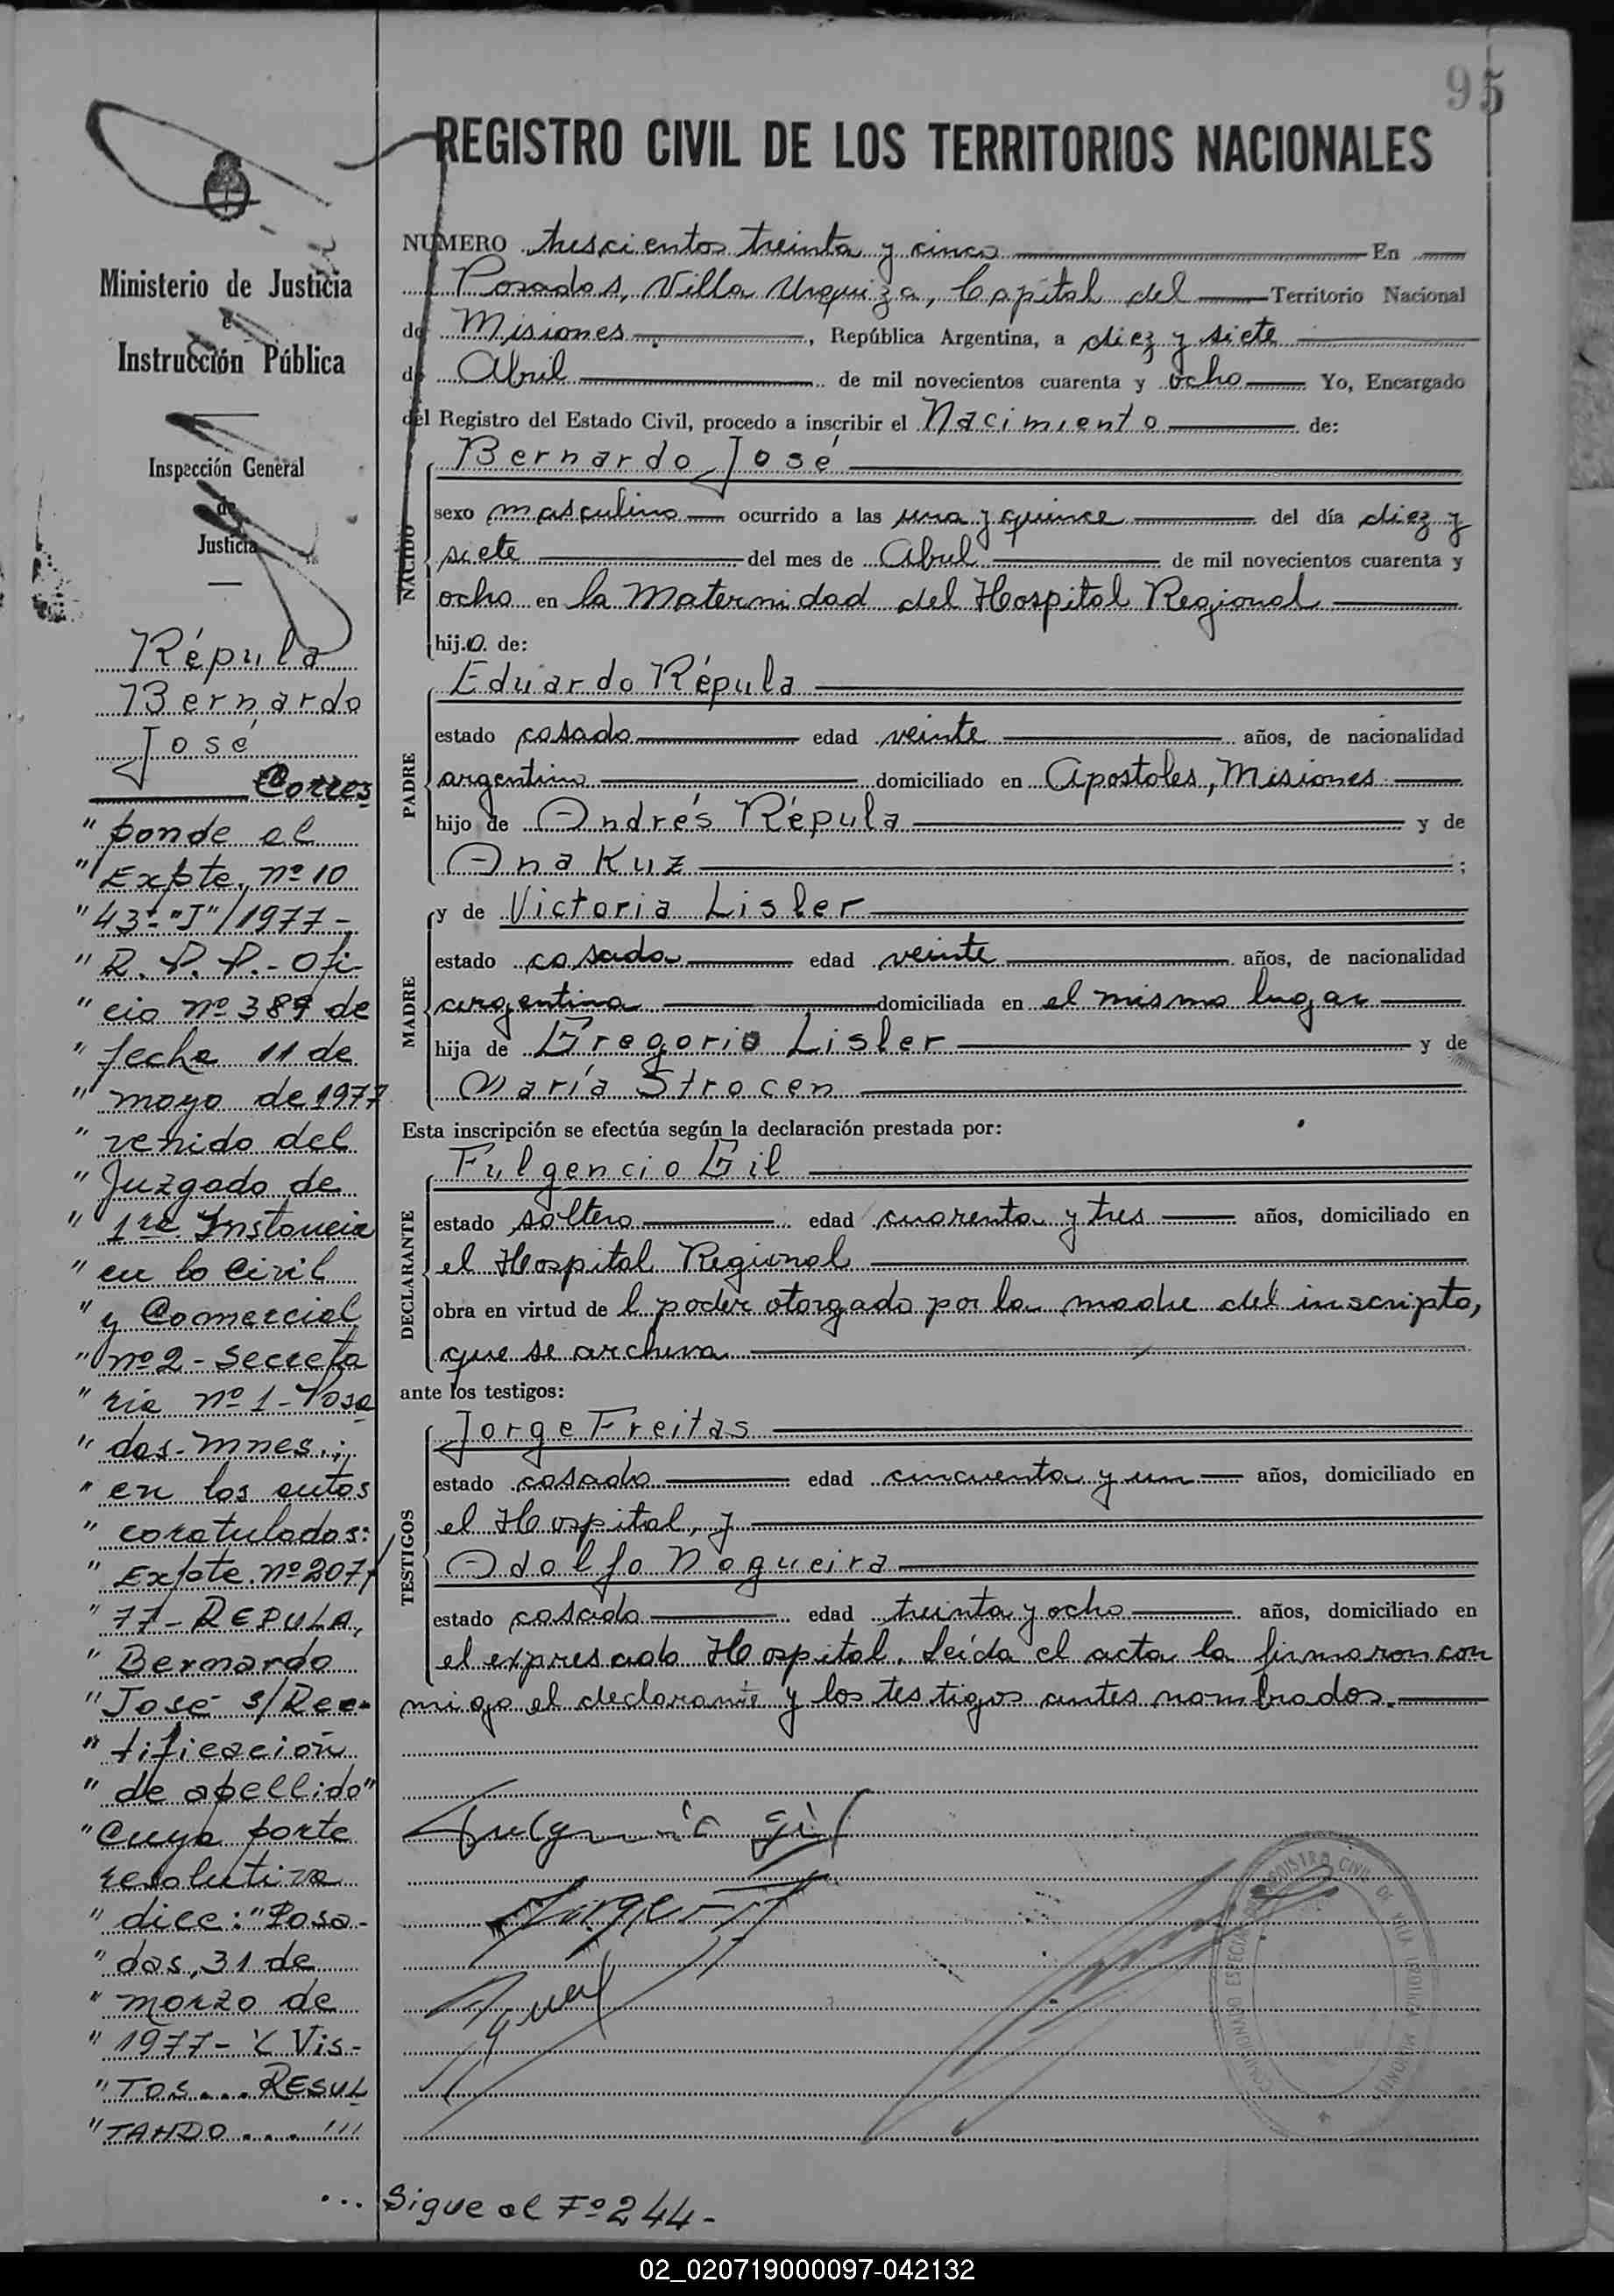 95
REGISTRO CIVIL DE LOS TERRITORIOS NACIONALES
Ministerio de Justicia
e
Instrucción Pública
Inspección General
de
Justicia
Répula
Bernardo
José
Corres
" ponde al
" Expte. nº 10
" 43- "J"/1977-
" R. P. P. - Ofi
" cio nº 389 de
" fecha 11 de
" mayo de 1977
" venido del
" Juzgado de
" 1ra. Instancia
" en lo Civil
" y Comercial
" nº 2 - Secreta
" ria nº 1 - Posa
" das - Mnes.;
" en los autos
" caratulados:
" Expte. nº 207/
" 77 - REPULA,
" Bernardo
" José s/Rec-
" tificación
" de apellido"
" Cuya parte
resolutiva
" dice: "Posa-
" das, 31 de
" marzo de
" 1977- Y Vis-
" TOS... RESUL
" TANDO....'''
NUMERO trescientos treinta y cinco En
Posadas, Villa Urquiza, Capital del Territorio Nacional
de Misiones, República Argentina, a diez y siete
de Abril de mil novecientos cuarenta y ocho Yo, Encargado
del Registro del Estado Civil, procedo a inscribir el Nacimiento de:
NACIDO
Bernardo José
sexo masculino ocurrido a las una y quince del día diez y
siete del mes de Abril de mil novecientos cuarenta y
ocho en la Maternidad del Hospital Regional
hijo de:
PADRE
Eduardo Répula
estado casado edad veinte años, de nacionalidad
argentino domiciliado en Apostoles, Misiones
hijo de Andrés Répula y de
Ana Kuz ;
MADRE
y de Victoria Lisler
estado casada edad veinte años, de nacionalidad
argentina domiciliada en el mismo lugar
hija de Gregorio Lisler y de
María Strocen
Esta inscripción se efectúa según la declaración prestada por:
DECLARANTE
Fulgencio Gil
estado soltero edad cuarenta y tres años, domiciliado en
el Hospital Regional
obra en virtud de l poder otorgado por la madre del inscripto,
que se archiva
ante los testigos:
TESTIGOS
Jorge Freitas
estado casado edad cincuenta y un años, domiciliado en
el Hospital, y
Adolfo Nogueira
estado casado edad treinta y ocho años, domiciliado en
el expresado Hospital. Leída el acta la firmaron con
migo el declarante y los testigos antes nombrados.
Fulgencio Gil
Jorge
... Sigue al Fº 244-
02_020719000097-042132